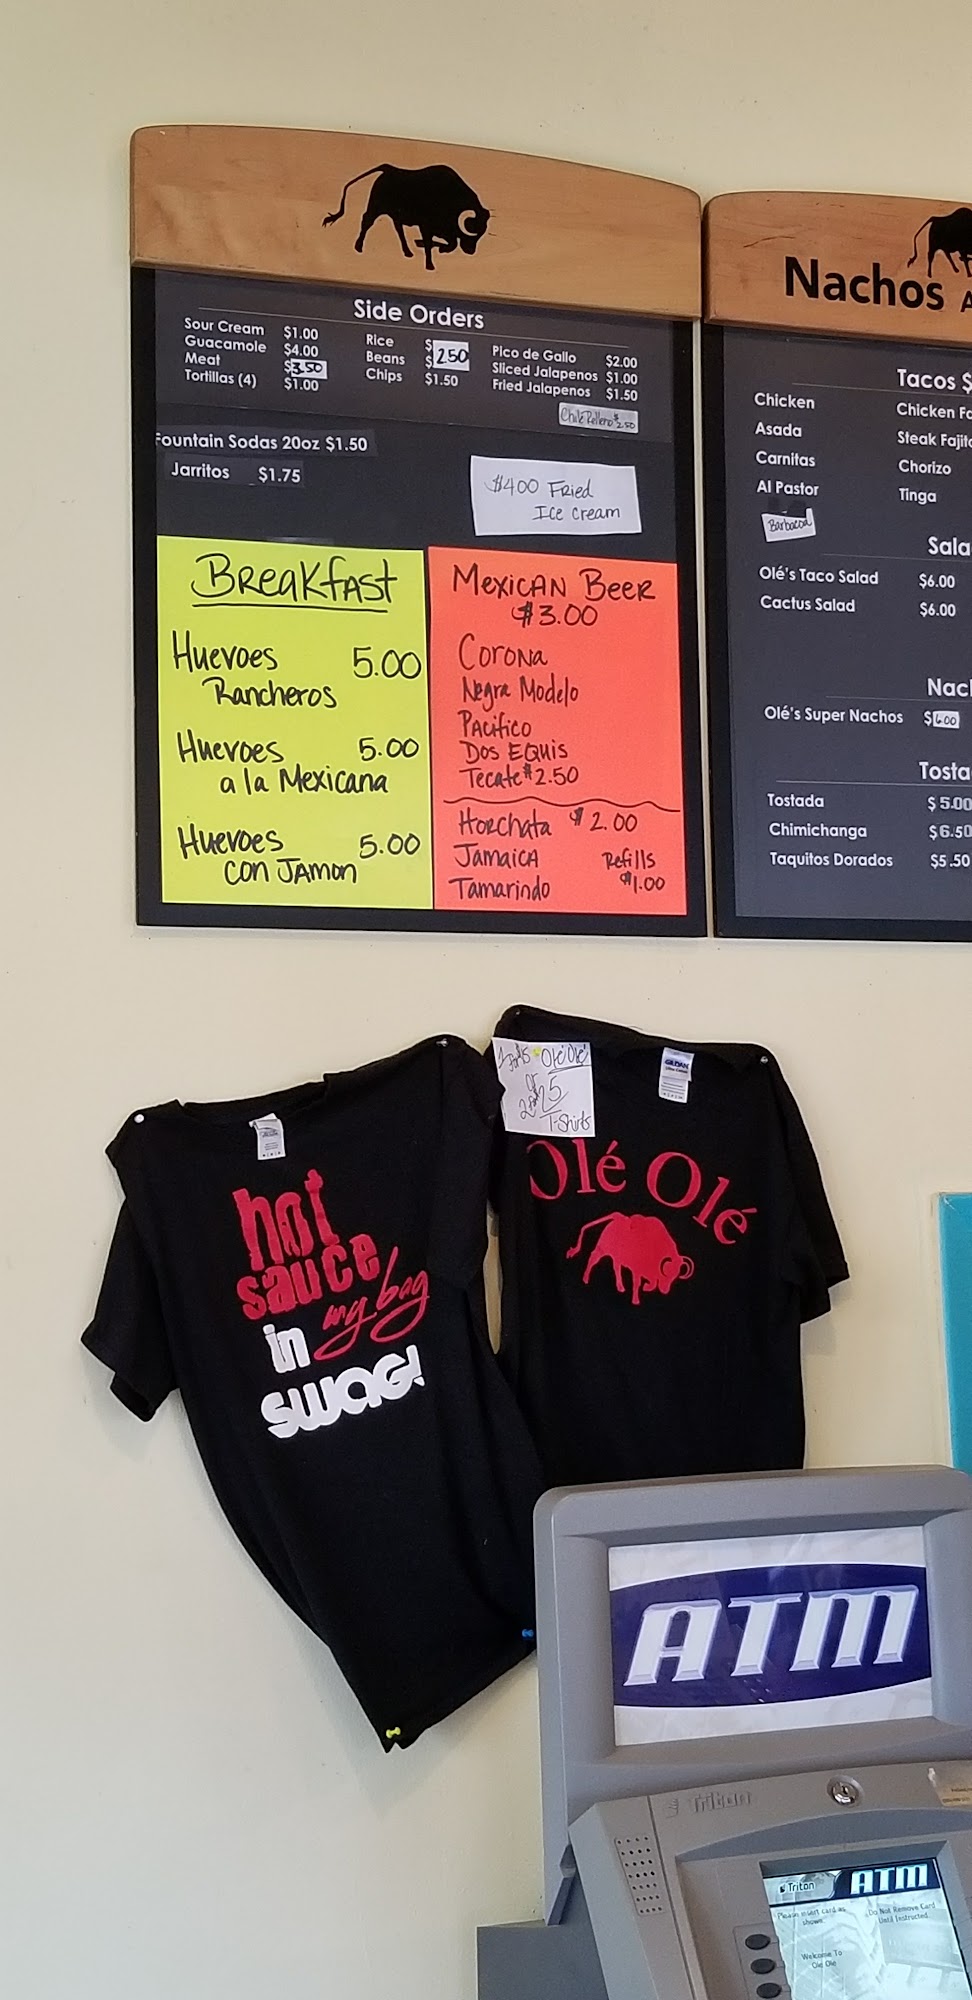 Side Orders
Sour Cream $1.00
Guacamole $4.00
Meat $3.50
Tortillas (4) $1.00
Rice $
Beans $ 2.50
Chips $1.50
Pico de Gallo $2.00
Sliced Jalapenos $1.00
Fried Jalapenos $1.50
Chile Relleno $2.50
Fountain Sodas 20oz $1.50
Jarritos $1.75
$400 Fried
Ice Cream
Breakfast
Huevoes 5.00
Rancheros
Huevoes 5.00
a la Mexicana
Huevoes 5.00
con Jamon
Mexican Beer
$3.00
Corona
Negra Modelo
Pacifico
Dos Equis
Tecate $2.50
Horchata $2.00
Jamaica Refills
Tamarindo $1.00
Nachos A
Tacos $
Chicken
Asada
Carnitas
Al Pastor
Barbacoa
Chicken Fa
Steak Fajita
Chorizo
Tinga
Sala
Olé's Taco Salad $6.00
Cactus Salad $6.00
Nach
Olé's Super Nachos $6.00
Tosta
Tostada $5.00
Chimichanga $6.50
Taquitos Dorados $5.50
hot
sauce
in my bag
swag!
1 for $15 Olé Olé
or
2 for 25
T-Shirts
GILDAN
Olé Olé
ATM
Triton
Triton ATM
Please insert card as
shown
Do Not Remove Card
Until Instructed
Welcome To
Ole Ole